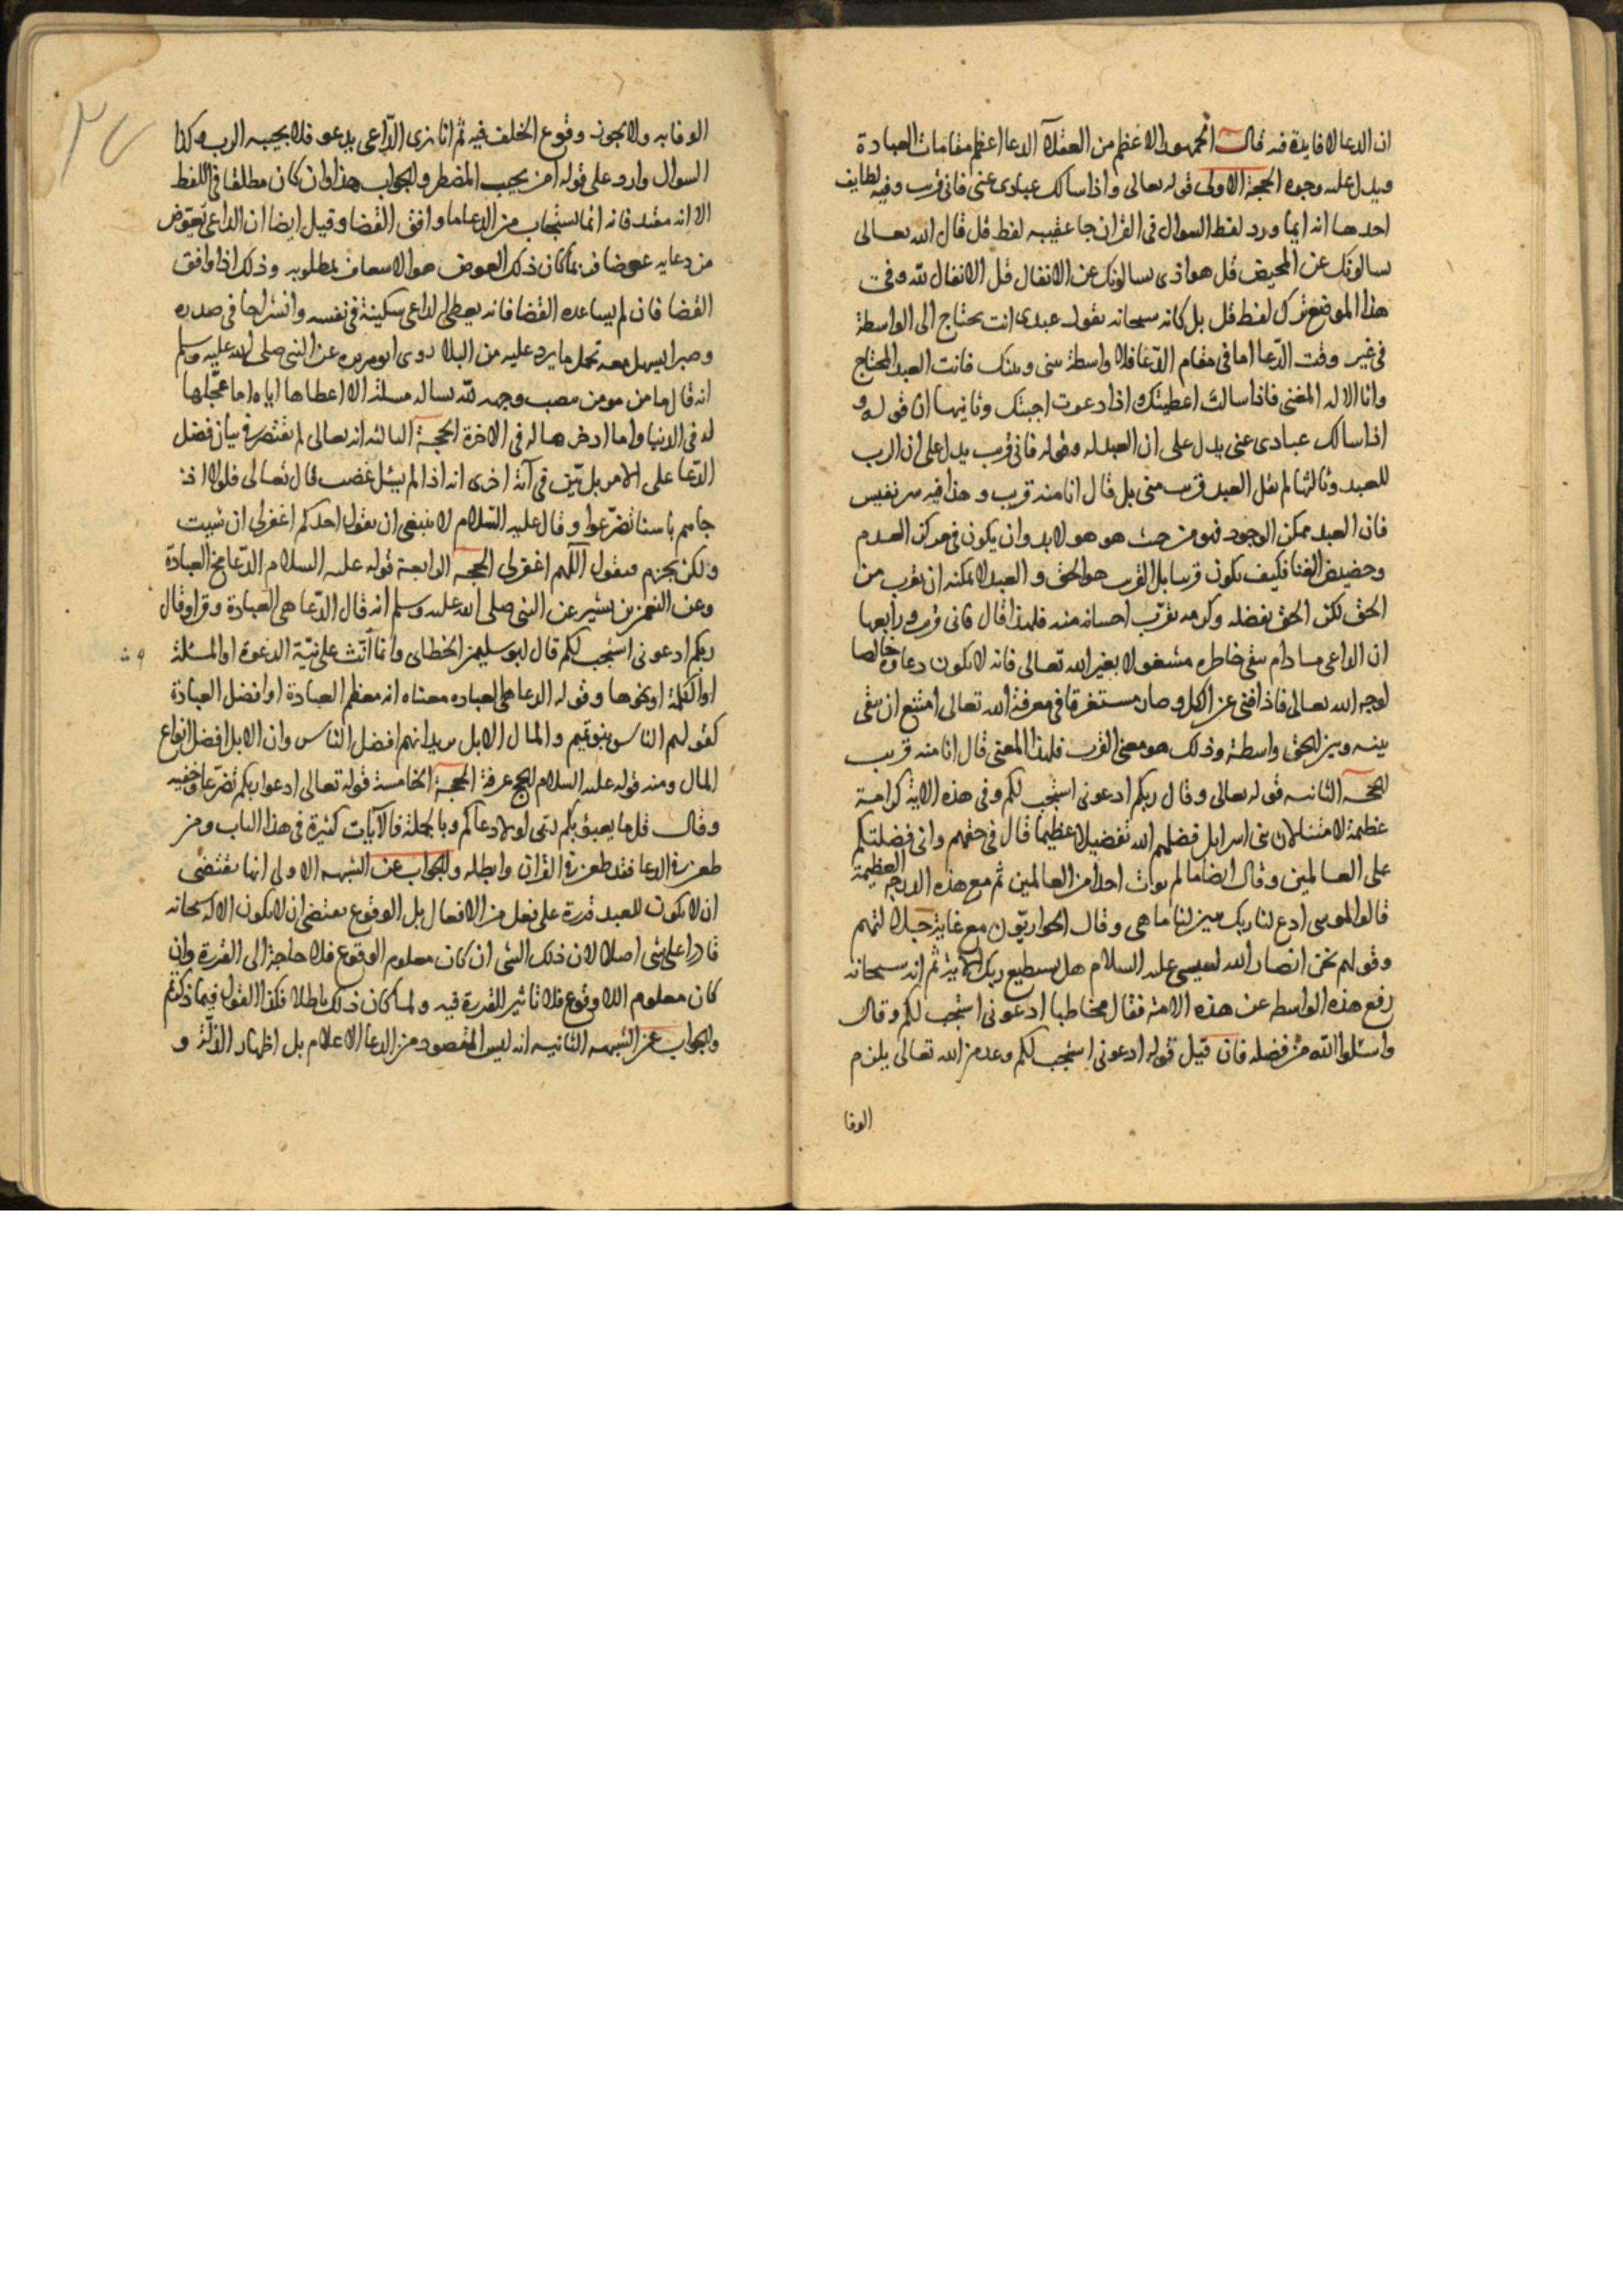 ان الدعا لا فايدة فيه قال الجمهور الاعظم من العقلآ الدعا اعظم مقامات العبادة
ويدل عليه وجوه الحجة الاولى قوله تعالى واذا سالك عبادى عنى فانى قريب وفيه لطايف
احدها انه اينما ورد لفظ السوال فى القران جا عقيبه لفظ قل قال الله تعالى
يسالونك عن المحيض قل هو اذى يسالونك عن الانفال قل الانفال لله وفى
هذا الموضع ترك لفظ قل بل كانه سبحانه يقول عبدى انت يحتاج الى الواسطة
فى غير وقت الدّعا اما فى مقام الدّعا فلا واسطة بينى وبينك فانت العبد المحتاج
وانا الاله المغنى فاذا سالت اعطيتك واذا دعوت اجبتك وثانيها ان قوله و
اذا سالك عبادى عنى يدل على ان العبد له وقوله فانى قريب يدل على ان الرب
للعبد وثالثها لم يقل العبد قريب منى بل قال انا منه قريب وهذا فيه سر نفيس
فان العبد ممكن الوجود فهو من حيث هو هو لا بد وان يكون فى مركز العدم
وحضيض الفنا فكيف يكون قريبا بل القريب هو الحق و العبد لا يمكنه ان يقرب من
الحق لكن الحق بفضله وكرمه يقرّب احسانه منه فلهذا قال فانى قريب ورابعها
ان الداعى ما دام يبقى خاطره مشغولا بغير الله تعالى فانه لا يكون دعاوه خالصا
لوجه الله تعالى فاذا فنى عن الكل وصار مستغرقا فى معرفة الله تعالى امتنع ان يبقى
بينه وبين الحق واسطة وذلك هو معنى القرب فلهذا المعنى قال انا منه قريب
الحجة الثانيه قوله تعالى وقال ربكم ادعونى استجب لكم وفى هذه الاية كرامة
عظيمة لامتنا لان بنى اسرايل فضلهم الله تفضيلا عظيما قال فى حقهم وانى فضلتكم
على العالمين وقال ايضا ما لم يوات احدا من العالمين ثم مع هذه الدرجه العظيمة
قالوا لموسى ادع لنا ربك يبين لنا ما هى وقال الحواريّون مع غاية جلالتهم
وقولهم نحن انصار الله لعيسى عليه السلام هل يستطيع ربك الاية ثم انه سبحانه
رفع هذه الواسطه عن هذه الامة فقال مخاطبا ادعونى استجب لكم وقال
واسئلوا الله من فضله فان قيل قوله ادعونى استجب لكم وعد من الله تعالى يلزم
الوفا
الوفا به ولا يجوز وقوع الخلف فيه ثم انا نرى الدّاعى يدعو فلا يجيبه الرب وكذا
السوال وارد على قوله امن يجيب المضطر والجواب هذا وان كان مطلقا فى اللفظ
الا انه مقيد فانه انما يستجاب من الدعا ما وافق القضا وقيل ايضا ان الداعى يعوّض
من دعايه عوضا فربما كان ذلك العوض هو الاسعاف بمطلوبه وذلك اذا وافق
القضا فان لم يساعده القضا فانه يعطى الداعى سكينة فى نفسه وانشراحا فى صدره
وصبرا يسهل معه تحمل ما يرد عليه من البلا روى ابو هريره عن النبى صلى الله عليه وسلم
انه قال ما من مومن ينصب وجهه لله يساله مسلة الا اعطاها اياه اما عجّلها
له فى الدنيا واما ادخرها له فى الاخرة الحجة الثالثه انه تعالى لم يقتصر فى بيان فضل
الدّعا على الامر بل بيّن فى آية اخرى انه اذا لم يسئل غضب قال تعالى فلولا اذ
جاهم باسنا تضرّعوا وقال عليه السّلام لا ينبغى ان يقول احدكم اغفرلى ان شيت
ولكن يجزم فيقول اللّهم اغفرلى الحجه الرابعة قوله عليه السلام الدّعا مخ العبادة
وعن النعمن بن بشير عن النبى صلى الله عليه وسلم انه قال الدّعا هى العبادة وقرا وقال
ربكم ادعونى استجب لكم قال ابو سليمن الخطابى وانما انّث على نيّة الدعوة او المسئلة
او الكلمة او نحوها وقوله الدعا هى العباده معناه انه معظم العبادة او افضل العبادة
كقولهم الناس بنو تميم و المال الابل يريد انهم افضل الناس وان الابل افضل انواع
المال ومنه قوله عليه السلام الحج عرفة الحجة الخامسة قوله تعالى ادعوا ربكم تضرّعا وخفيه
وقال قل ما يعبؤ بكم ربى لولا دعاكم وبالجملة فالآيات كثيرة فى هذا الباب ومن
طعن فى الدعا فقد طعن فى القران وابطله والجواب عن الشبهه الاولى انها تقتضى
ان لا يكون للعبد قدرة على فعل من الافعال بل الوقوع يقتضى ان لا يكون الاله سبحانه
قادرا على شى اصلا لان ذلك الشى ان كان معلوم الوقوع فلا حاجة الى القدرة وان
كان معلوم اللا وقوع فلا تاثير للقدرة فيه ولما كان ذلك باطلا فكذا القول فيما ذكرتم
والجواب عن الشبهه الثانيه انه ليس المقصود من الدعا الاعلام بل اظهار الذلّة و